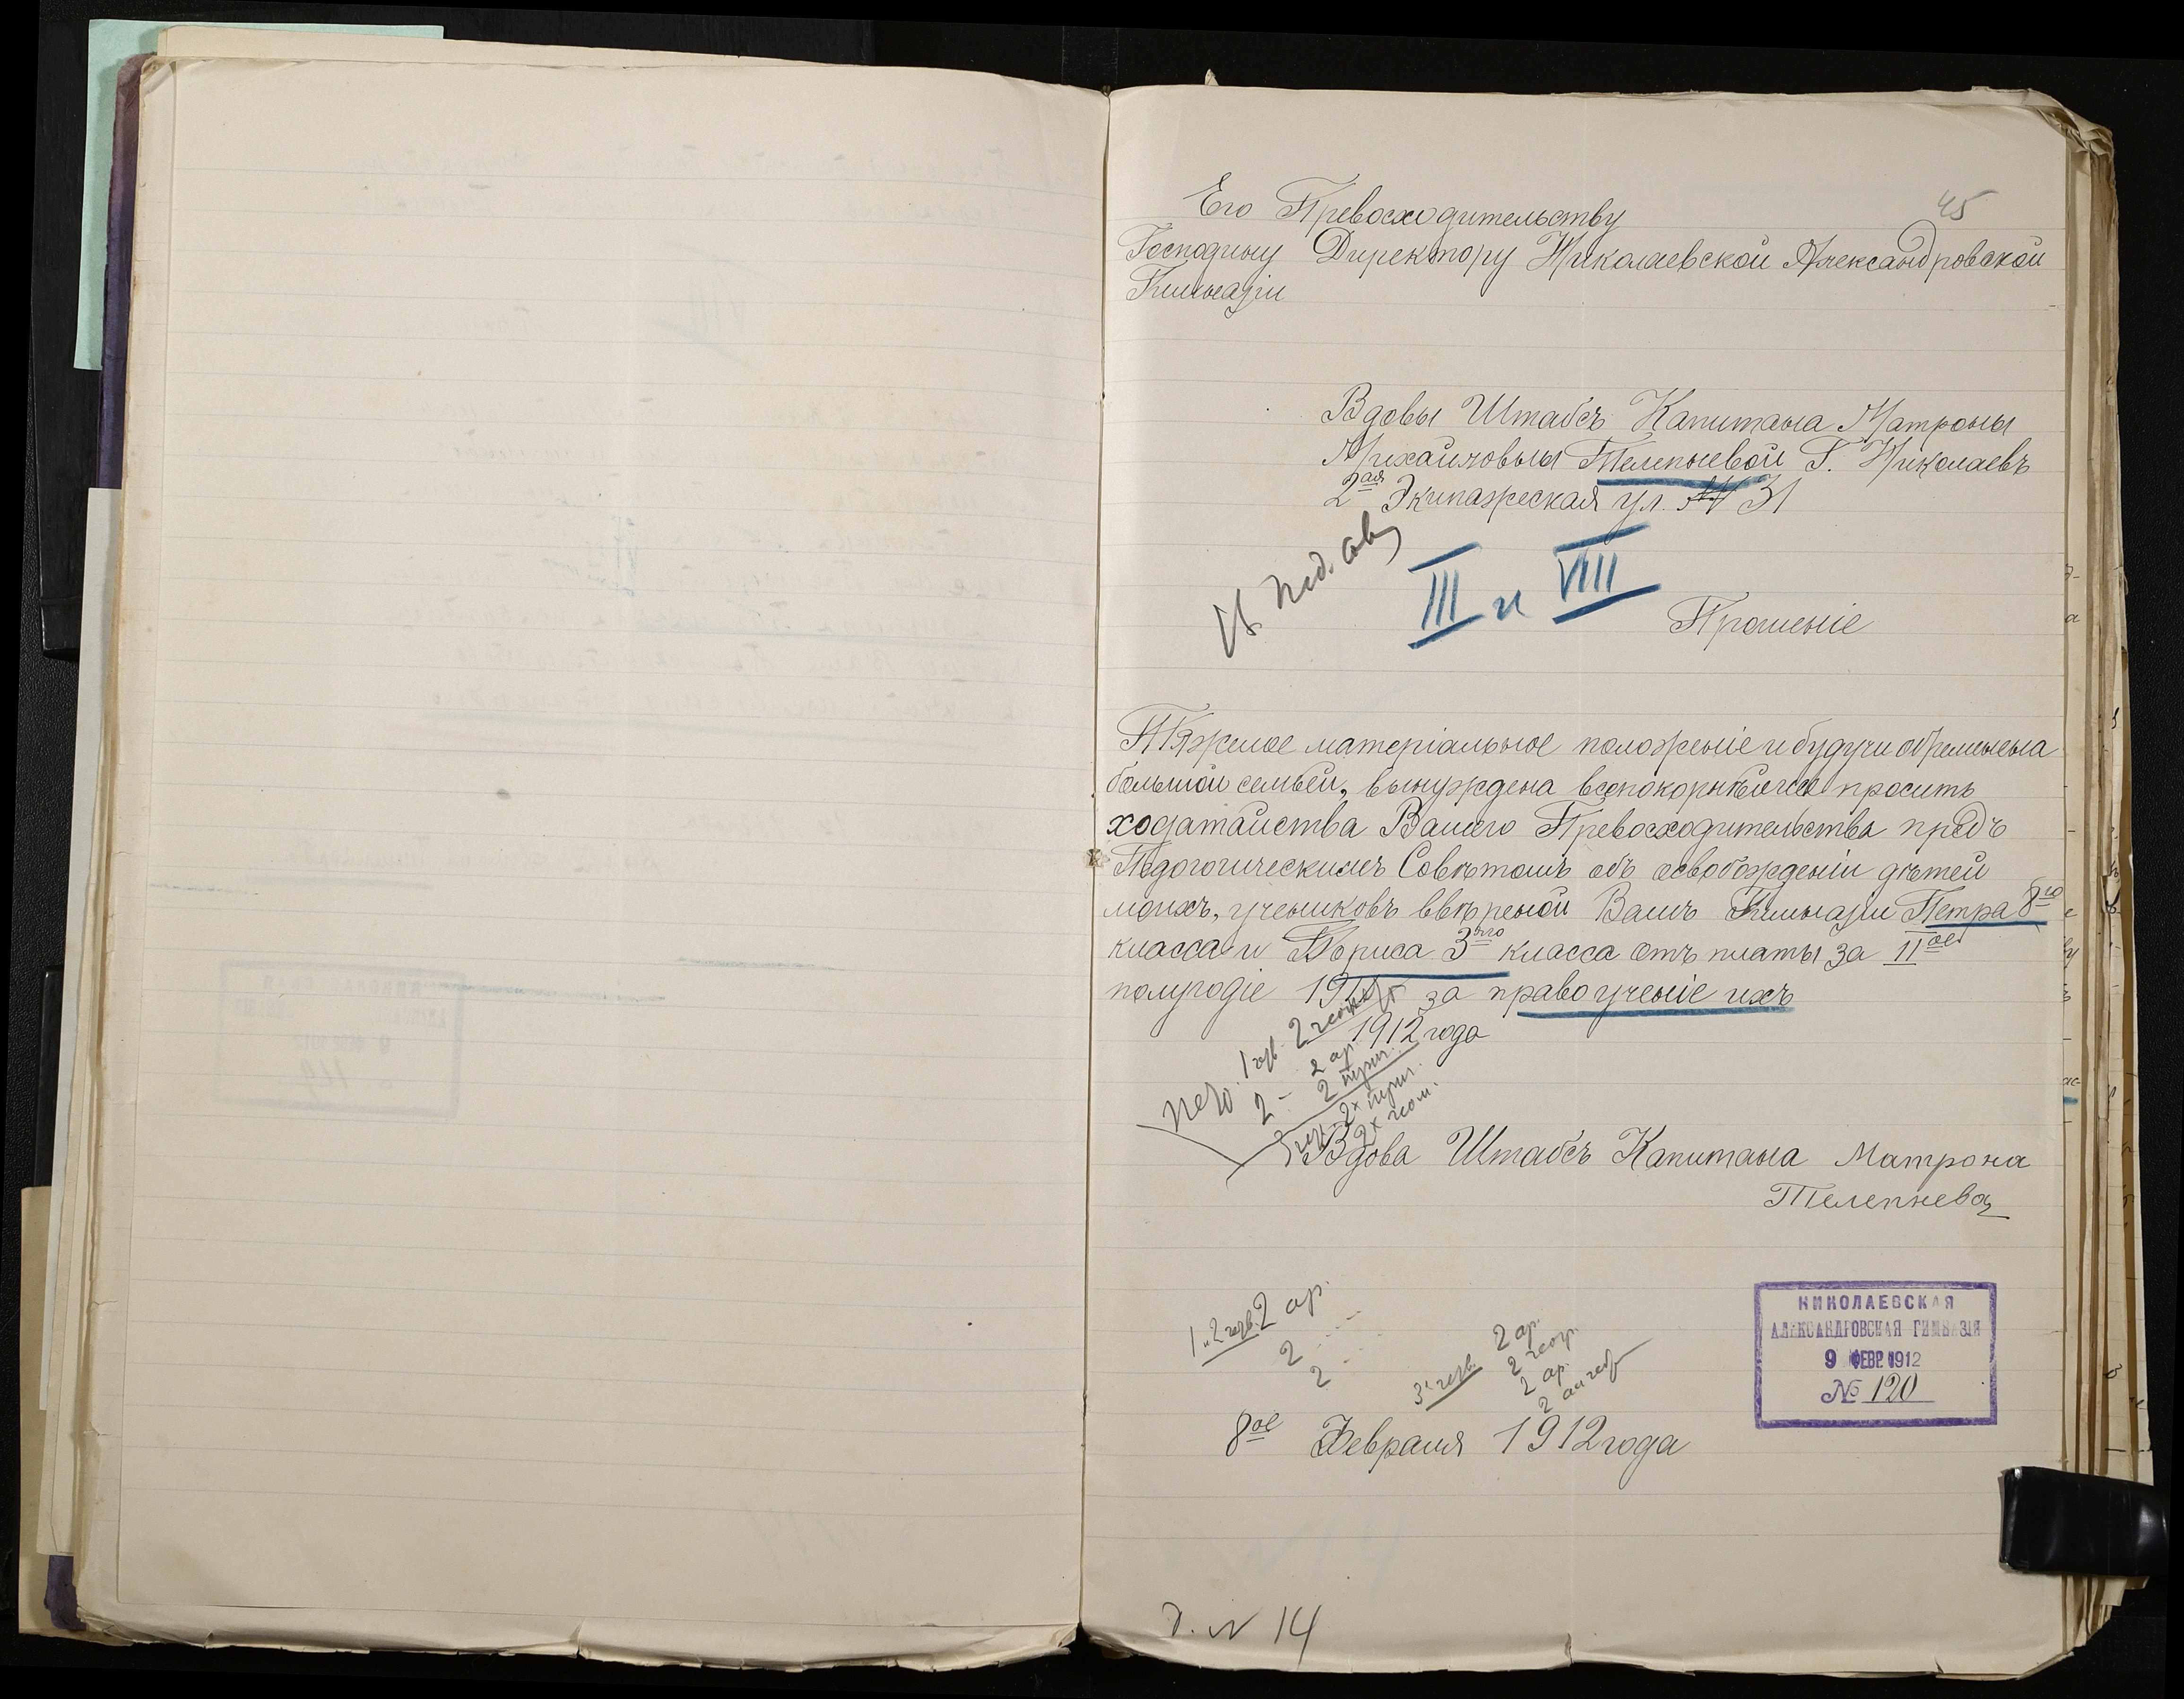 45
Его Превосходительству
Господину Директору Николаевской Александровской
Гимназіи
Вдовы Штабсъ Капитана Матроны
Михайловны Телепневой Г. Николаевъ
2ая Экипажеская ул. № 31
III и VIII
Прошеніе
Тяжелое матеріальное положеніе и будучи обременена
большой семьей, вынуждена всепокорнѣйше просить
ходатайства Вашего Превосходительства предъ
Педогогическимъ Совѣтомъ объ освобожденіи дѣтей
моихъ, учениковъ ввѣреной Вамъ Гимназіи Петра 8го
класса и Бориса 3яго класса отъ платы за II ое
полугодіе за право ученіе ихъ
1912 года
2 ар.
Вдова Штабсъ Капитана Матрона
Телепнева
1 и 2 четв. 2 ар.
2
2
3 четв. 2 ар.
2 геогр.
2 ар.
НИКОЛАЕВСКАЯ
АЛЕКСАНДРОВСКАЯ ГИМНАЗІЯ
9 ФЕВР. 1912
№ 120
8ое Февраля 1912 года
д. № 14